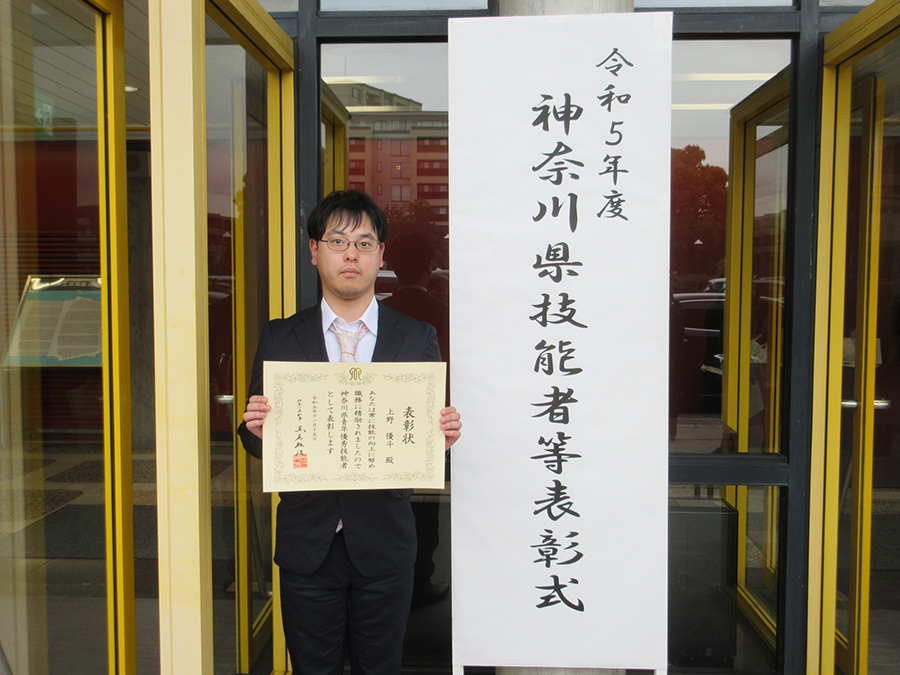 令和5年度
神奈川県技能者等表彰式
表彰状
上野 優斗 殿
あなたは常に技能の向上に努め
職務に精励されましたので
神奈川県青年優秀技能者
として表彰します
令和五年十一月十五日